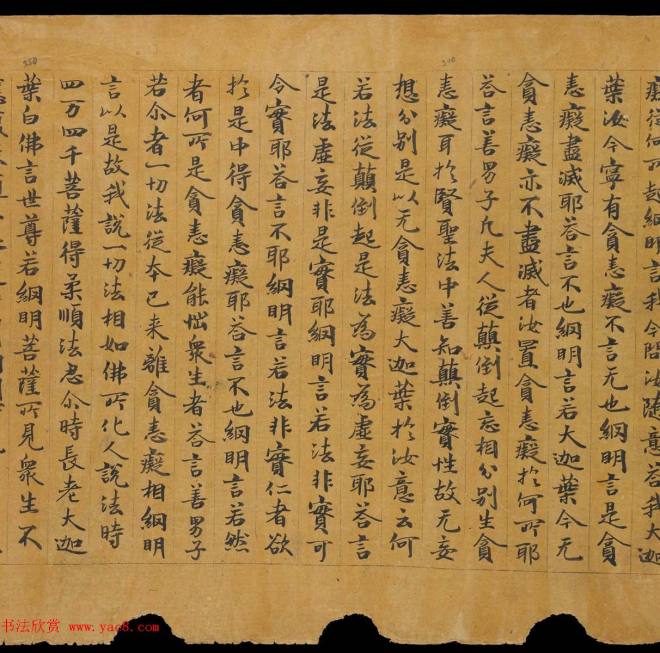 癡從何所起綱明言我今問汝隨意答我大迦
葉汝今寧有貪恚癡不言无也綱明言是貪
恚癡盡滅耶答言不也綱明言若大迦葉今无
貪恚癡亦不盡滅者汝置貪恚癡於何所耶
答言善男子凡夫人從顛倒起妄相分別生貪
恚癡耳於賢聖法中善知顛倒實性故无妄
想分別是以无貪恚癡大迦葉於汝意云何
若法從顛倒起是法為實為虛妄耶答言
是法虛妄非是實耶綱明言若法非實可
令實耶答言不耶綱明言若法非實仁者欲
於是中得貪恚癡耶答言不也綱明言若然
者何所是貪恚癡能惱衆生者答言善男子
若尒者一切法從本已来離貪恚癡相綱明
言以是故我說一切法相如佛所化人說法時
四万四千菩薩得柔順法忍尒時長老大迦
葉白佛言世尊若綱明菩薩所見衆生不
350
340
书法欣赏 www.yac8.com